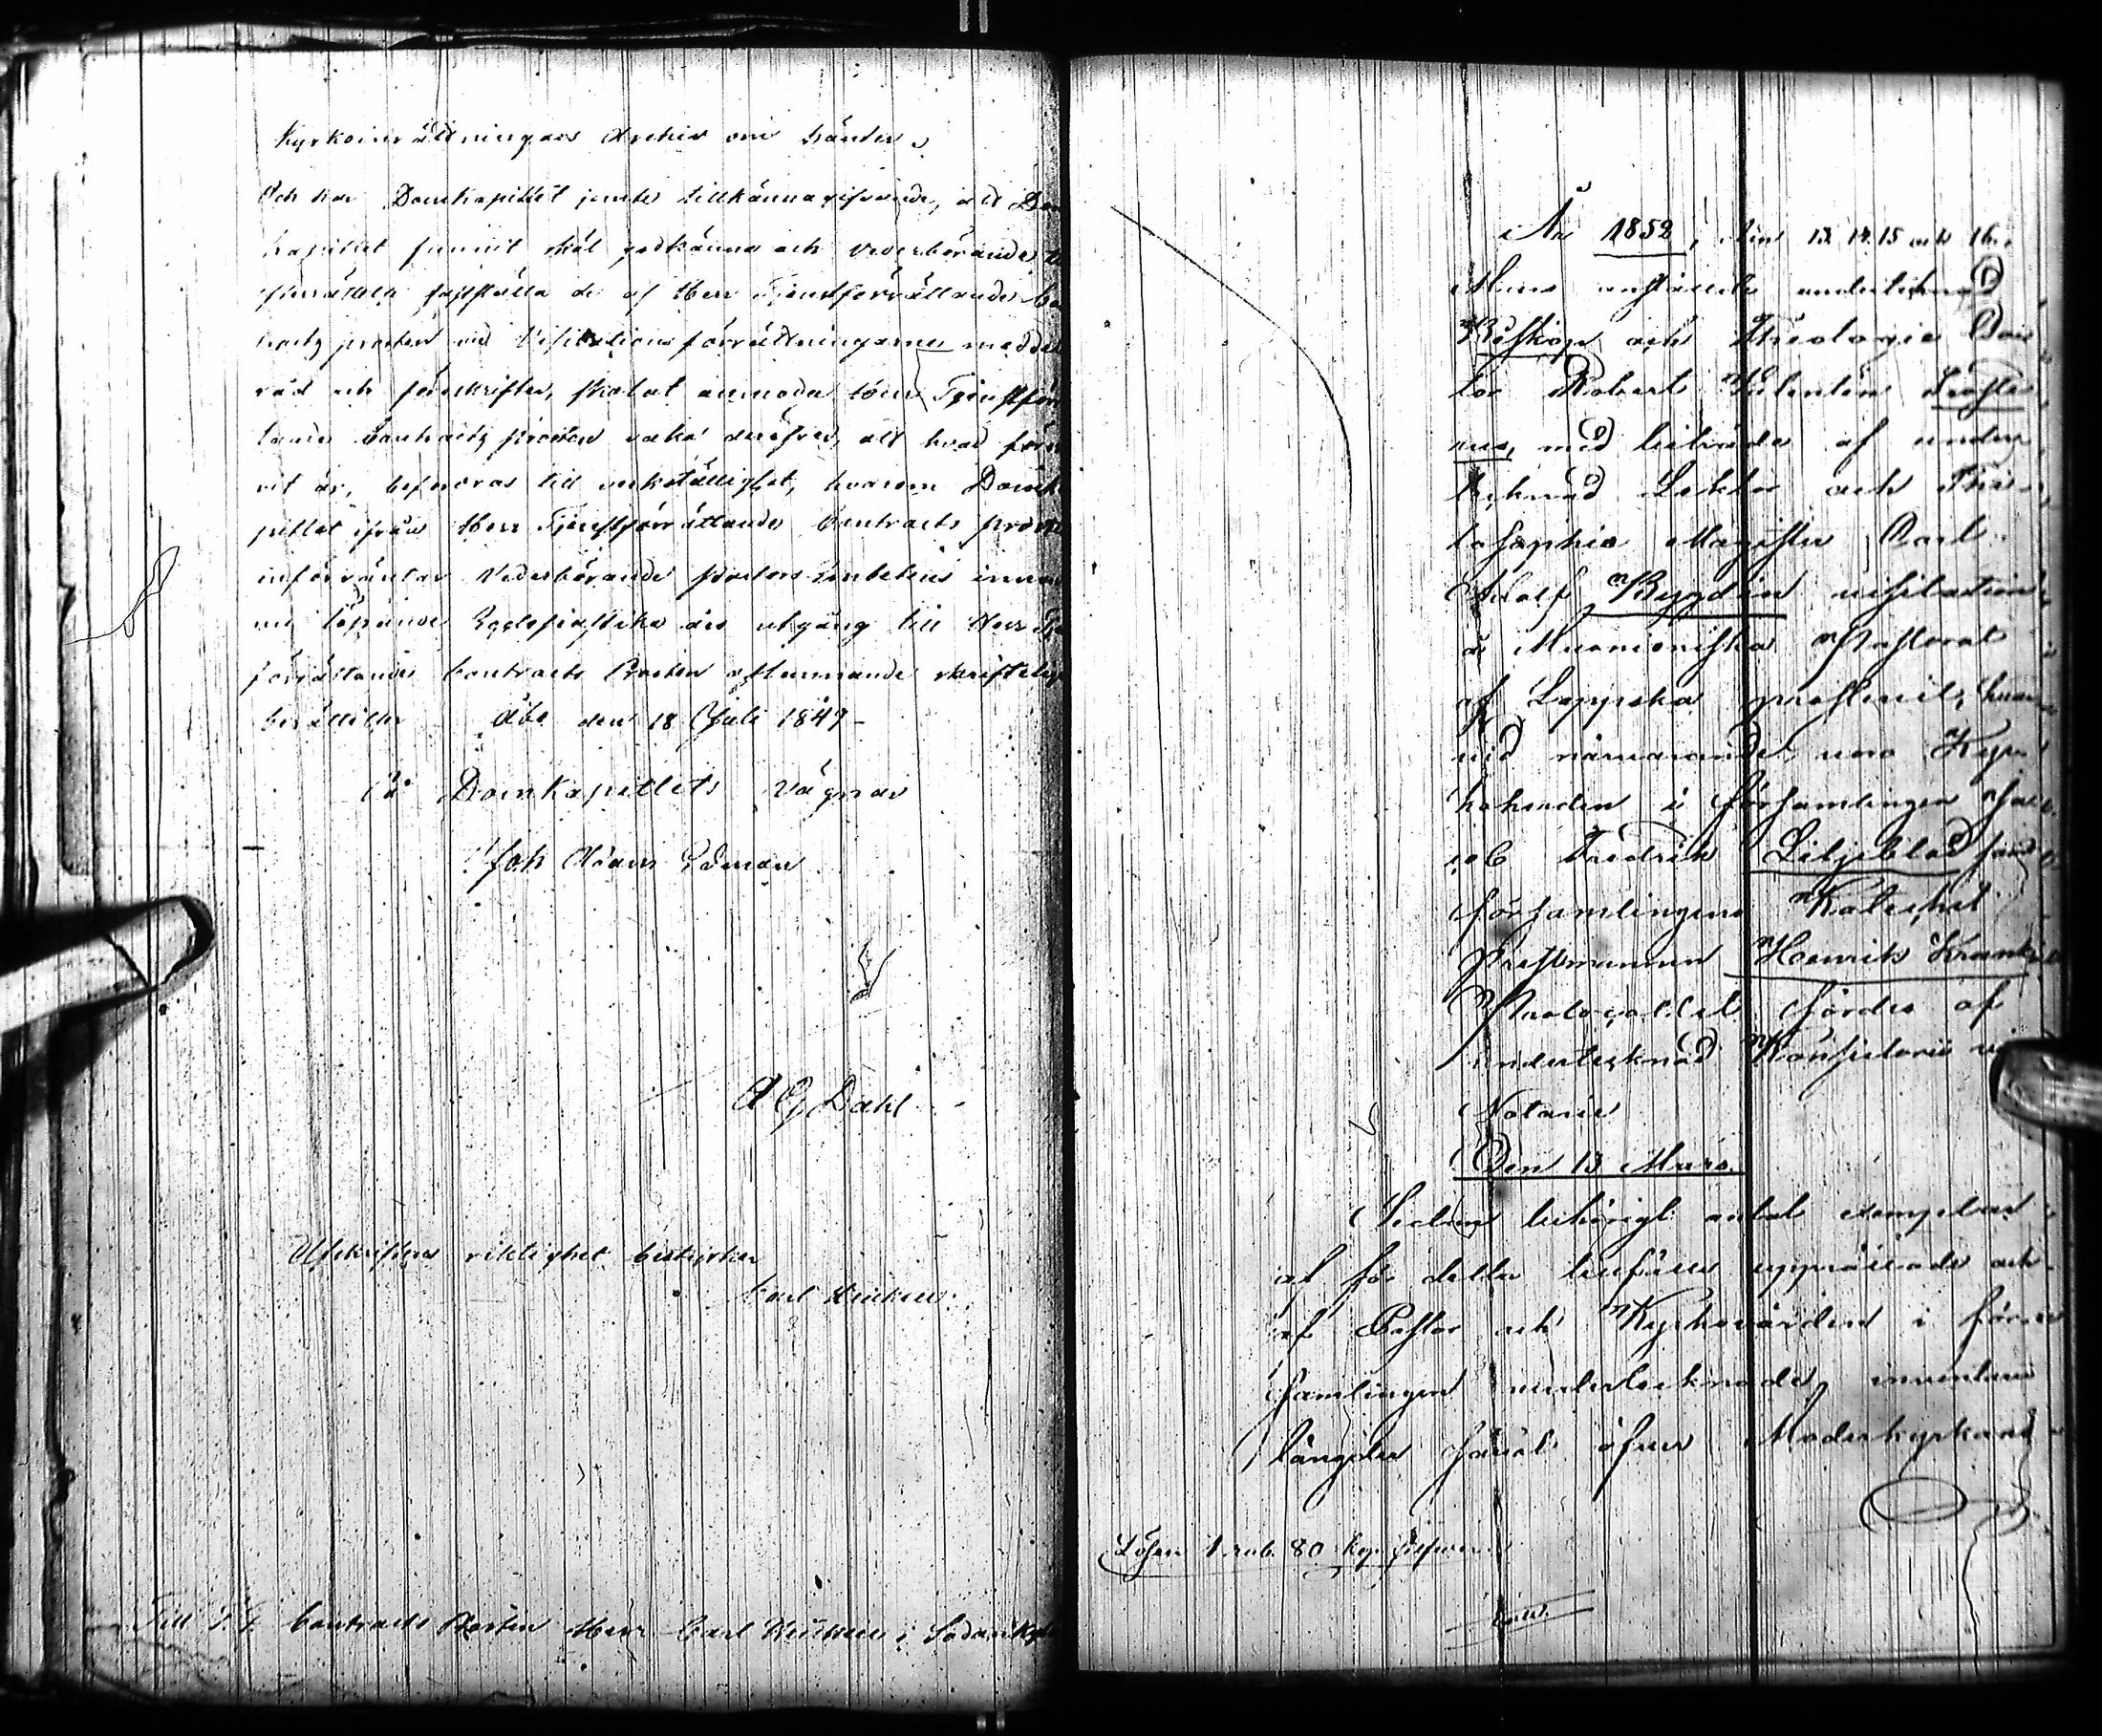 Kyrkoinrättningars Archiv om händer.
Och har Domkapitlet jemte tillkännagifvande, att Dom
kapitlet funnit skäl godkänna och vederbörande
fastställa de af Herr Tjenstförrättande
prosten vid Visitations förrättningarne meddel
råd och föreskrifter, skolat anmoda Tjenstför
tande Contracts prosten vaka deröfver, att hvad
vit är, befordras till verkställighet, hvarom Domka
pitlet ifrån Herr Tjenstförrättande Contracts prosten
införväntar Vederbörande pastors embetens
nu löpande Ecclesiastika års utgång till Herr Tje
förrättande Contracts Prosten afkommande skriftelig
berättelser Åbo den 18 Juli 1849
På Domkapitlets Vägnar
Joh Adam Edman
A G Dahl
Afskriftens riktighet bestyrker
Carl
Till T. f. Contracts Prosten Herr Carl i Sodankyl
År 1852, den 13. 14. 15 och 16.
Mars anstälde undertecknad
Biskop och Theologie Doc
tor Robert Valentin Froste
rus, med biträde af under
tecknad Lektor och Phi
losophie Magister Carl
Adolf Rygdin visitation
å Muonioniska Pastorat
af Lappska prosteriet, hvar
vid närvarande voro Kyrko
herden i församlingen Jac
ob Fredrik Liljeblad samt
församlingens Katechet
Prestmannen Henrik
Protocollet fördes af
undertecknad Konsistorii
Notarie
Den 13 Mars.
Sedan behörigt antal exemplar
af för detta upprättade och
af Pastor och Kyrkovärden i för
samlingen undertecknade inventarie
längder såväl öfver Moderkyrkans
Lösen 1 rub. 80 kop. silfver